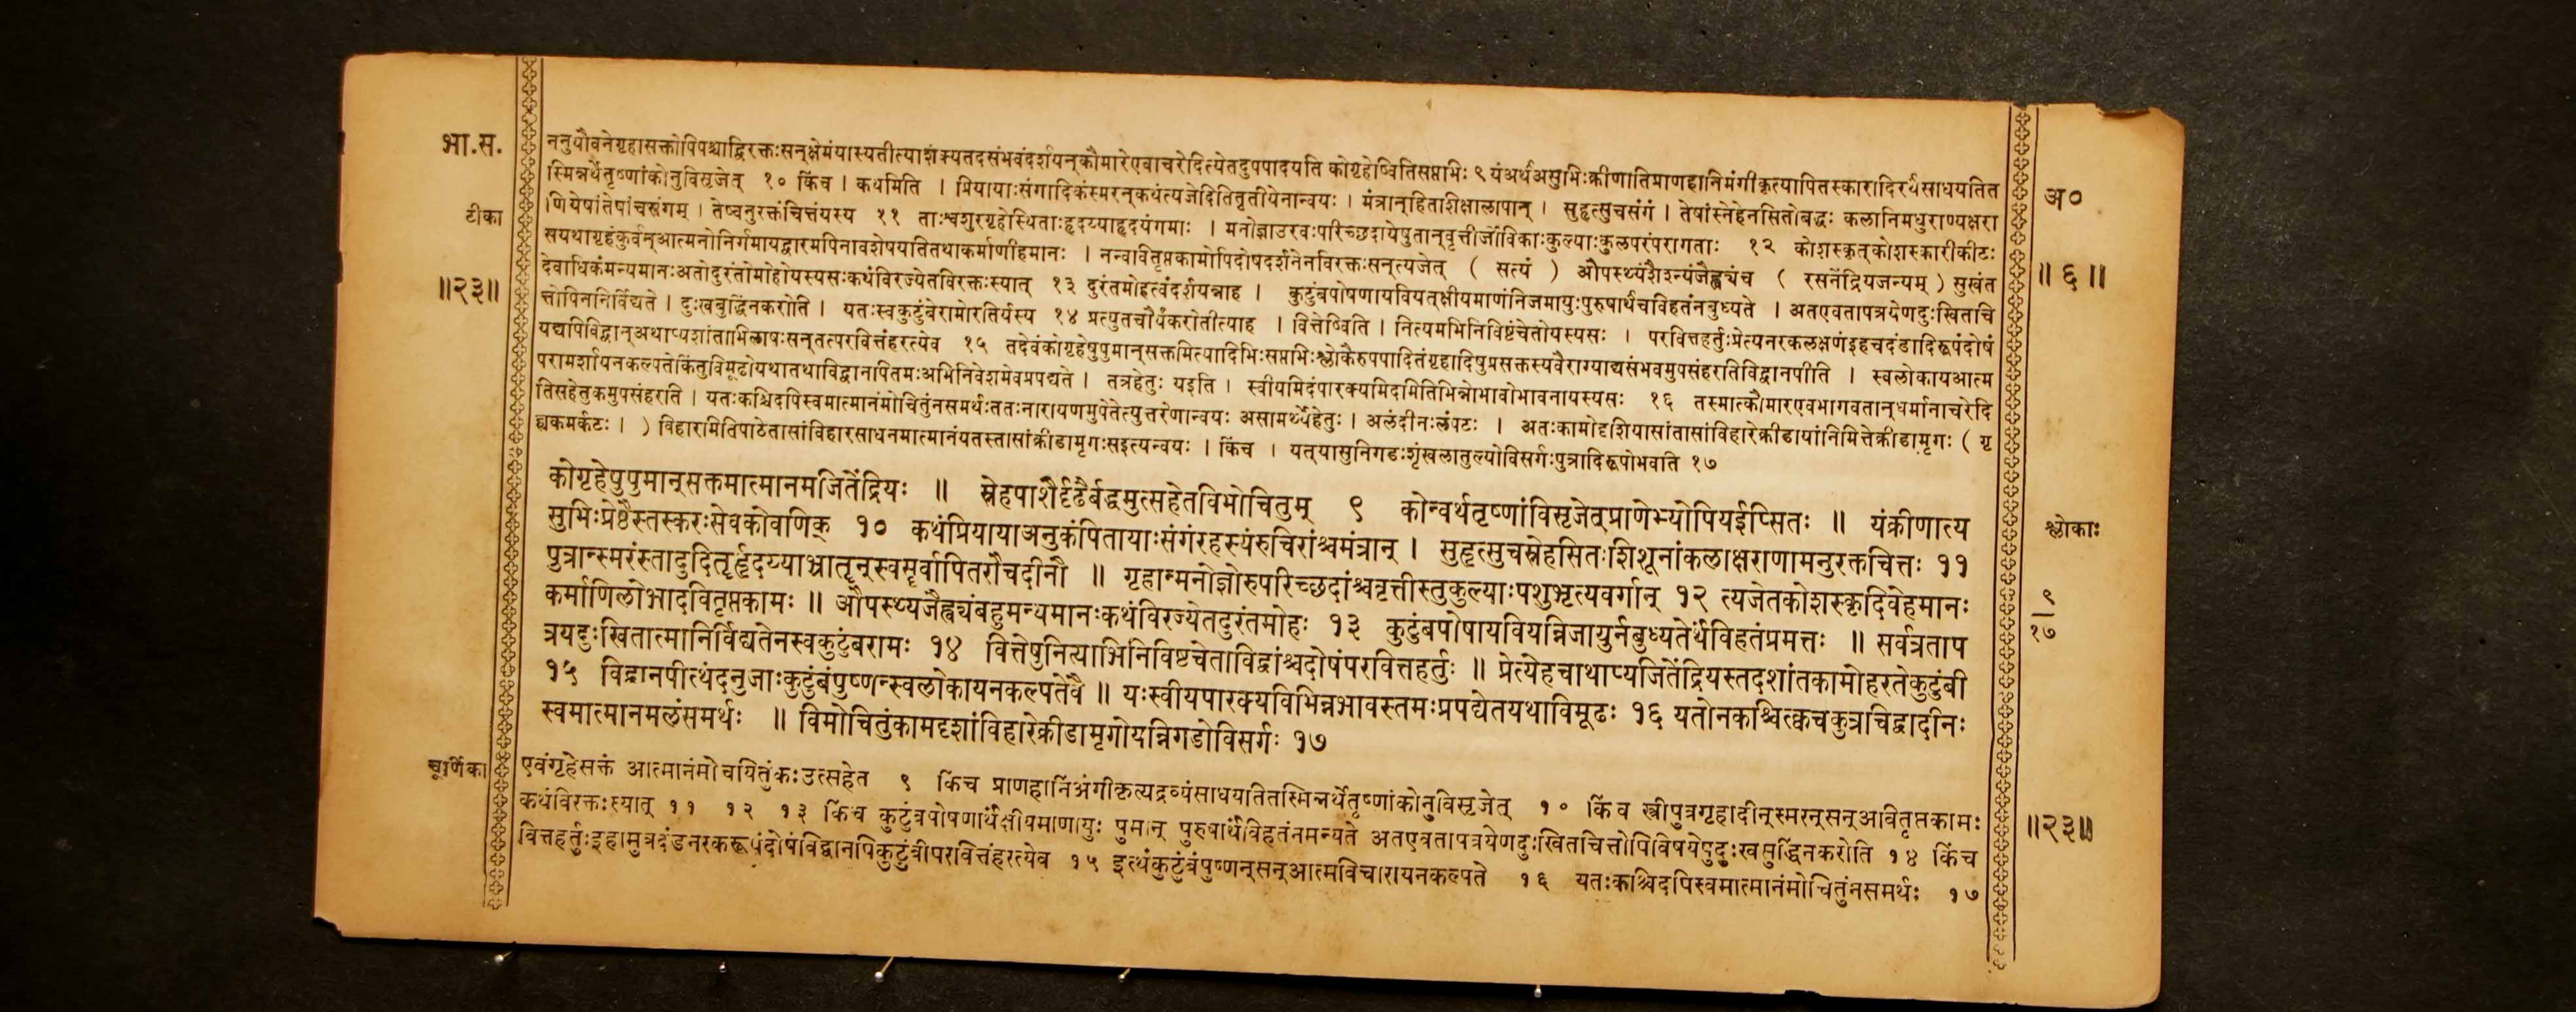 भा.स.
टीका
॥२३॥
ननुयौवनेगृहासक्तोपिपश्चाद्विरक्तःसन्क्षेमंयास्यतीत्याशंक्यतदसंभवंदर्शयन्कौमारेएवाचरेदित्येतदुपपादयति कोगृहेष्वितिसप्तभिः ९ यंअर्थंअसुभिःक्रीणातिप्राणहानिमंगीकृत्यापितस्कारादिरर्थंसाधयतित
स्मिन्नर्थेतृष्णांकोनुविसृजेत् १० किंच । कथमिति । प्रियायाःसंगादिकंस्मरन्कथंत्यजेदितितृतीयेनान्वयः । मंत्रान्हिताशिक्षालापान् । सुहृत्सुचसंगं । तेषांस्नेहेनसितोबद्धः कलानिमधुराण्यक्षरा
णियेषांतेषांचसंगम् । तेष्वनुरक्तंचित्तंयस्य ११ ताःश्वशुरगृहेस्थिताःहृदय्याहृदयंगमाः । मनोज्ञाउरवःपरिच्छदायेषुतान्वृत्तीर्जीविकाःकुल्याःकुलपरंपरागताः १२ कोशस्कृत्कोशस्कारीकीटः
सयथागृहंकुर्वन्आत्मनोनिर्गमायद्वारमपिनावशेषयतितथाकर्माणीहमानः । नन्ववितृप्तकामोपिदोषदर्शनेनविरक्तःसन्त्यजेत् ( सत्यं ) औपस्थ्यंशैश्न्यंजैह्व्यंच ( रसनेंद्रियजन्यम् ) सुखंत
देवाधिकंमन्यमानःअतोदुरंतोमोहोयस्यसःकथंविरज्येतविरक्तःस्यात् १३ दुरंतमोहत्वंदर्शयन्नाह । कुटुंबपोषणायवियत्क्षीयमाणंनिजमायुःपुरुषार्थंचविहतंनबुध्यते । अतएवतापत्रयेणदुःखितचि
त्तोपिननिर्विद्यते । दुःखबुद्धिंनकरोति । यतःस्वकुटुंबेरामोरतिर्यस्य १४ प्रत्युतचौर्यंकरोतीत्याह । वित्तेष्विति । नित्यमभिनिविष्टंचेतोयस्यसः । परवित्तहर्तुःप्रेत्यनरकलक्षणंइहचदंडादिरूपंदोषं
यद्यपिविद्वान्अथाप्यशांताभिलाषःसन्तत्परवित्तंहरत्येव १५ तदेवंकोगृहेषुपुमान्सक्तमित्यादिभिःसप्तभिःश्लोकैरुपपादितंगृहादिषुप्रसक्तस्यवैराग्याद्यसंभवमुपसंहरतिविद्वानपीति । स्वलोकायआत्म
परामर्शायनकल्पतेकिंतुविमूढोयथातथाविद्वानपितमःअभिनिवेशमेवप्रपद्यते । तत्रहेतुः यइति । स्वीयमिदंपारक्यमिदमितिभिन्नोभावोभावनायस्यसः १६ तस्मात्कौमारएवभागवतान्धर्मानाचरेदि
तिसहेतुकमुपसंहरति । यतःकश्चिदपिस्वमात्मानंमोचितुंनसमर्थःततःनारायणमुपेतेत्युत्तरेणान्वयः असामर्थ्येहेतुः । अलंदीनःलंपटः । अतःकामोदृशियासांतासांविहारेक्रीडायांनिमित्तेक्रीडामृगः ( गृ
ह्यकमर्कटः । ) विहारमितिपाठेतासांविहारसाधनमात्मानंयतस्तासांक्रीडामृगःसइत्यन्वयः । किंच । यत्यासुनिगडःशृंखलातुल्योविसर्गःपुत्रादिरूपोभवति १७
कोगृहेषुपुमान्सक्तमात्मानमजितेंद्रियः ॥ स्नेहपाशैर्दृढैर्बद्धमुत्सहेतविमोचितुम् ९ कोन्वर्थतृष्णांविसृजेत्प्राणेभ्योपियईप्सितः ॥ यंक्रीणात्य
सुभिःप्रेष्ठैस्तस्करःसेवकोवणिक् १० कथंप्रियायाअनुकंपितायाःसंगंरहस्यंरुचिरांश्चमंत्रान् । सुहृत्सुचस्नेहसितःशिशूनांकलाक्षराणामनुरक्तचित्तः ११
पुत्रान्स्मरंस्तादुहितॄर्हृदय्याभ्रातॄन्स्वसॄर्वापितरौचदीनौ ॥ गृहान्मनोज्ञोरुपरिच्छदांश्चवृत्तीस्तुकुल्याःपशुभृत्यवर्गान् १२ त्यजेतकोशस्कृदिवेहमानः
कर्माणिलोभादवितृप्तकामः ॥ औपस्थ्यजैह्व्यंबहुमन्यमानःकथंविरज्येतदुरंतमोहः १३ कुटुंबपोषायवियन्निजायुर्नबुध्यतेर्थंविहतंप्रमत्तः ॥ सर्वत्रताप
त्रयदुःखितात्मानिर्विद्यतेनस्वकुटुंबरामः १४ वित्तेषुनित्याभिनिविष्टचेताविद्वांश्चदोषंपरवित्तहर्तुः ॥ प्रेत्येहचाथाप्यजितेंद्रियस्तदशांतकामोहरतेकुटुंबी
१५ विद्वानपीत्थंदनुजाःकुटुंबंपुष्णन्स्वलोकायनकल्पतेवै ॥ यःस्वीयपारक्यविभिन्नभावस्तमःप्रपद्येतयथाविमूढः १६ यतोनकश्चित्क्वचकुत्राचिद्वादीनः
स्वमात्मानमलंसमर्थः ॥ विमोचितुंकामदृशांविहारेक्रीडामृगोयन्निगडोविसर्गः १७
चूर्णिका
एवंगृहेसक्तं आत्मानंमोचयितुंकःउत्सहेत ९ किंच प्राणहानिंअंगीकृत्यद्रव्यंसाधयतितस्मिन्नर्थेतृष्णांकोनुविसृजेत् १० किंच स्त्रीपुत्रगृहादीन्स्मरन्सन्अवितृप्तकामः
कथंविरक्तःस्यात् ११ १२ १३ किंच कुटुंबपोषणार्थंक्षीयमाणायुः पुमान् पुरुषार्थंविहतंनमन्यते अतएवतापत्रयेणदुःखितचित्तोपिविषयेषुदुःखबुद्धिंनकरोति १४ किंच
वित्तहर्तुःइहामुत्रदंडनरकरूपंदोषंविद्वानपिकुटुंबीपरवित्तंहरत्येव १५ इत्थंकुटुंबंपुष्णन्सन्आत्मविचारायनकल्पते १६ यतःकश्चिदपिस्वमात्मानंमोचितुंनसमर्थः १७
अ०
॥ ६ ॥
श्लोकाः
९
१७
॥२३॥